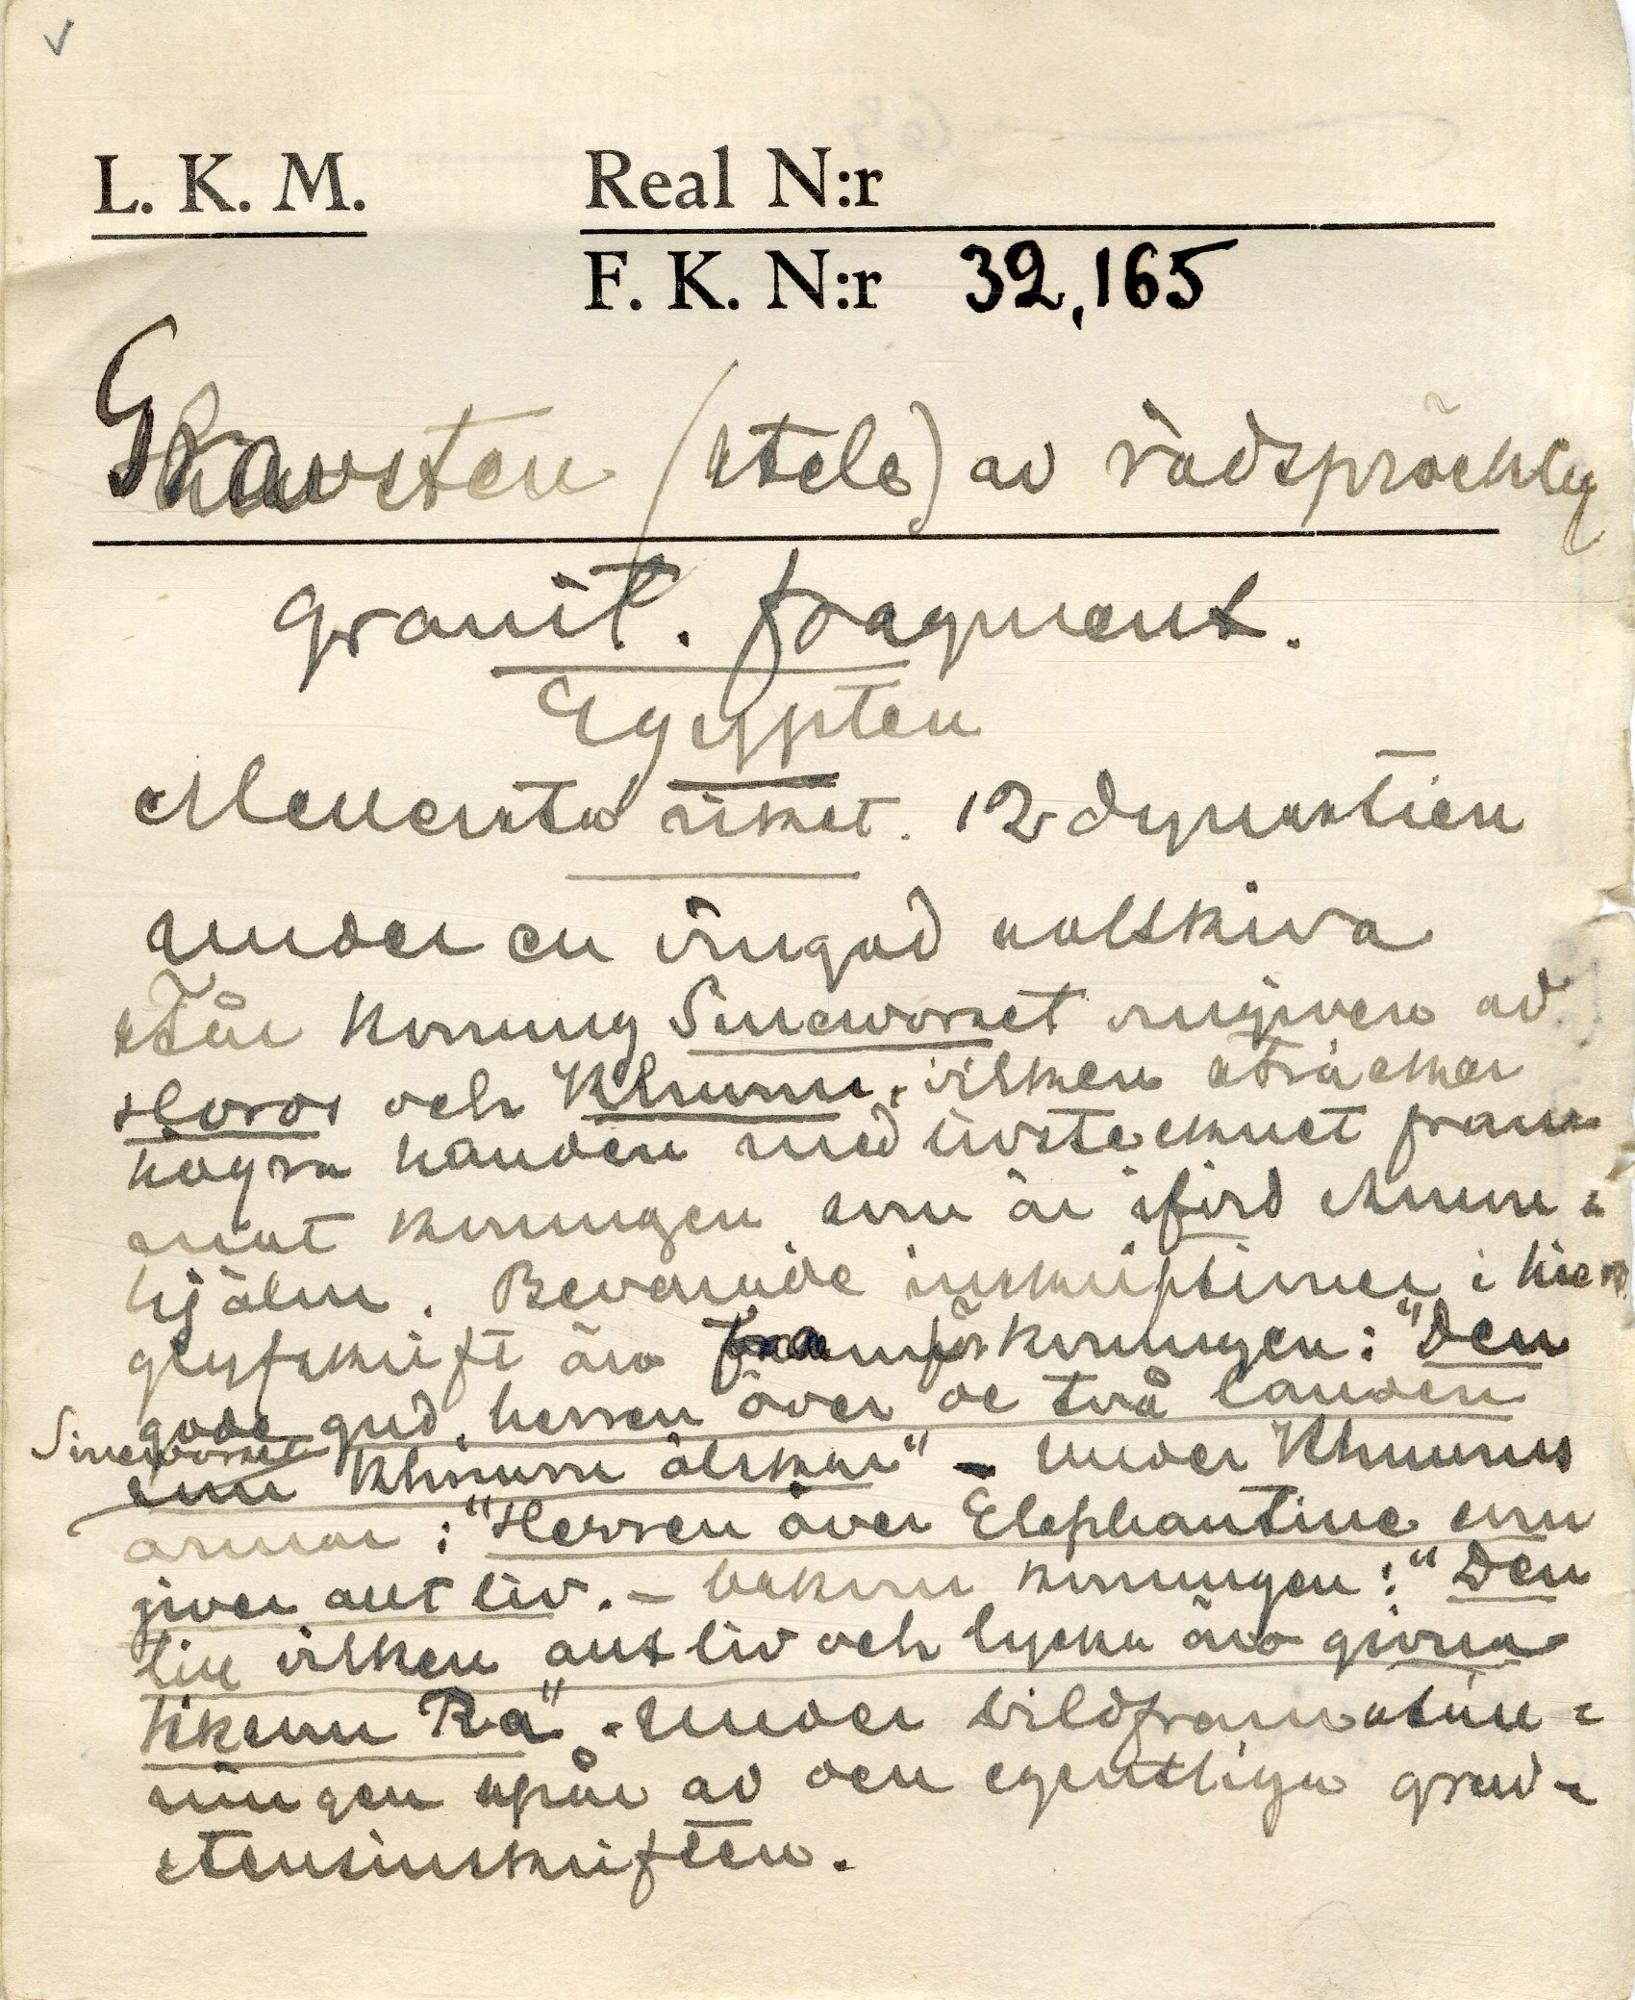 L. K. M.
Real N:r
F. K. N:r 32,165
Gravsten (stele) av rödspräcklig
granit. fragment.
Egypten
Mellersta riket. 12 dynastien
Under en vingad solskiva
står konung Sinewosret omgiven av
Horos och Khnum, vilken sträcker
högra handen med livstecknet fram
mot konungen som är iförd
hjälm. Bevarade inskriptioner i hiero
glyfskrift äro framför konungen: "Den
gode gud, herren över de två landen
Sinewosret
som Khnum älskar" - Under Khnums
armar: "Herren över Elephantine som
giver allt liv. - bakom konungen: "Den
liv vilken allt liv och lycka äro givna
liksom Ra". Under bildframställ=
ningen spår av den egentliga grav=
stensinskriften.